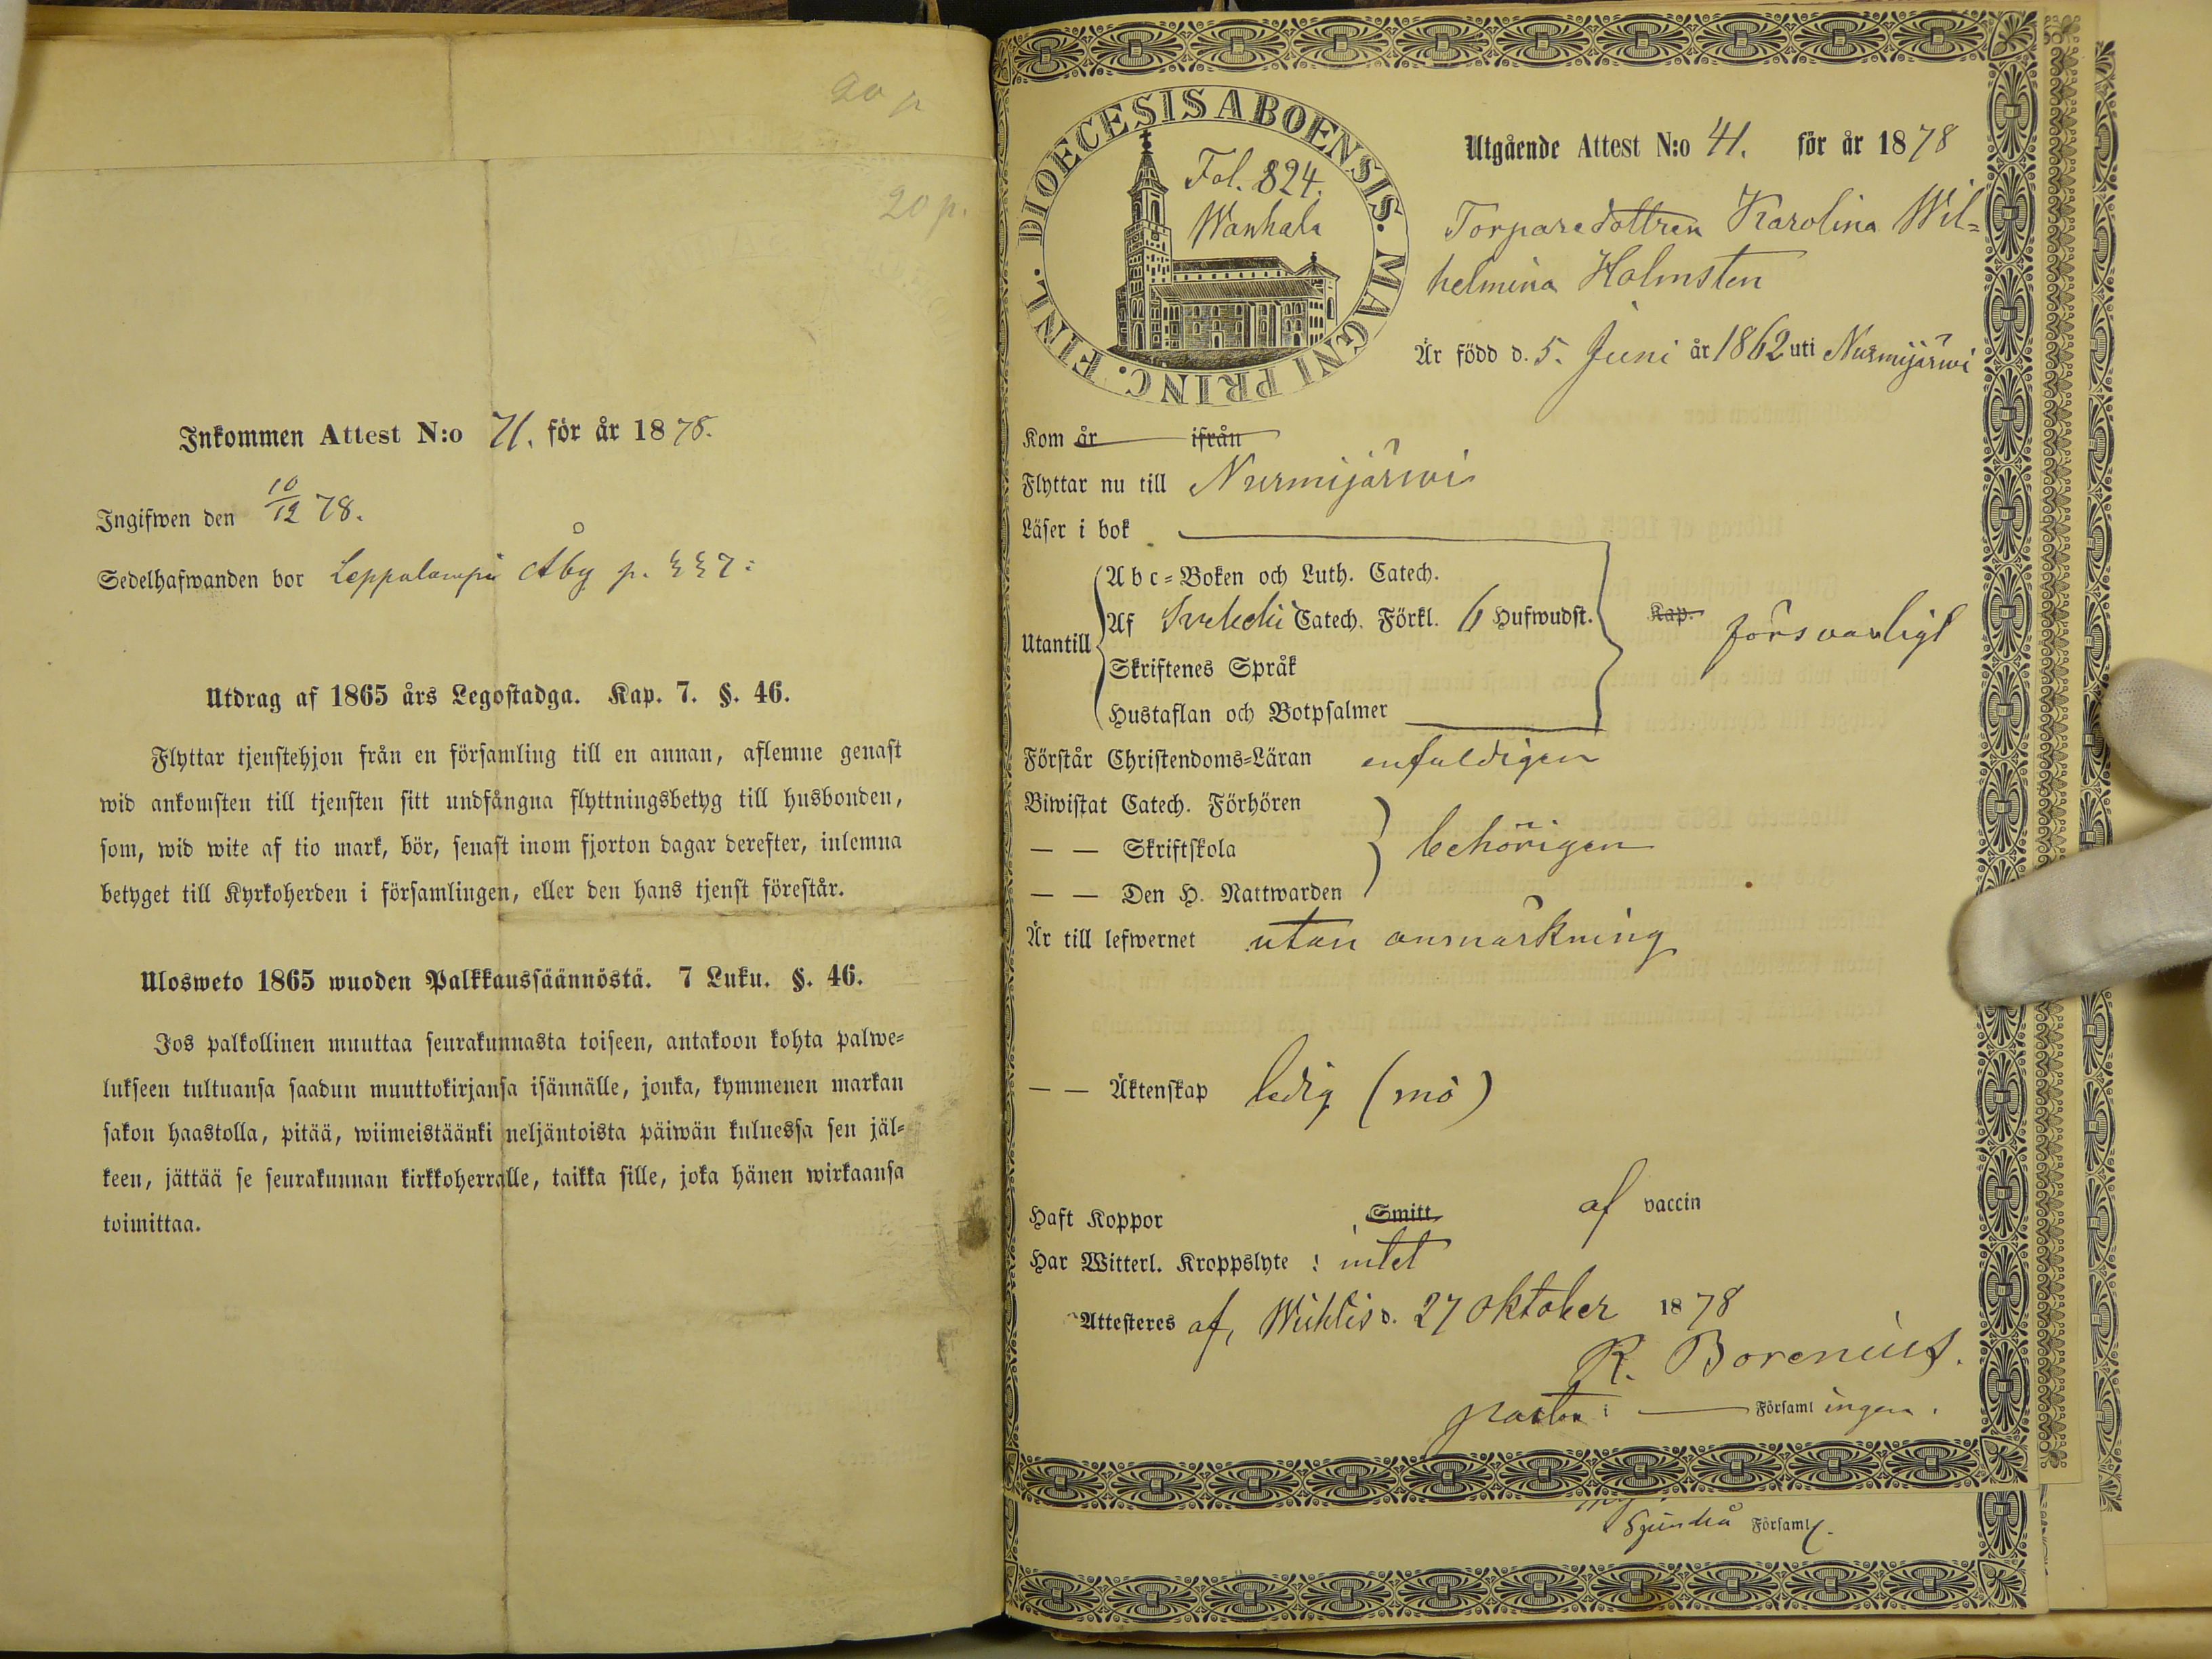 20 p
20 p.
Inkommen Attest N:o 71. för år 1878.
Ingifwen den 10/12 78.
Sedelhafwanden bor Leppälampi Åby p.
Utdrag af 1865 års Legostadga. Kap. 7. §. 46.
Flyttar tjenstehjon från en församling till en annan, aflemne genast
wid ankomsten till tjensten sitt undfångna flyttningsbetyg till husbonden,
som, wid wite af tio mark, bör, senast inom fjorton dagar derefter, inlemna
betyget till Kyrkoherden i församlingen, eller den hans tjenst förestår.
Ulosweto 1865 wuoden Palkkaussäännöstä. 7 Luku. §. 46.
Jos palkollinen muuttaa seurakunnasta toiseen, antakoon kohta palwe-
lukseen tultuansa saadun muuttokirjansa isännälle, jonka, kymmenen markan
sakon haastolla, pitää, wiimeistäänki neljäntoista päiwän kuluessa sen jäl-
keen, jättää se seurakunnan kirkkoherralle, taikka sille, joka hänen wirkaansa
toimittaa.
DIOECESIS ABOENSIS. MAGNI PRINC. FINL.
Fol. 824.
Wanhala
Utgående Attest N:o 41. för år 1878
Torparedottren Karolina Wil=
helmina Holmsten
Är född d. 5. Juni år 1862 uti Nurmijärwi
Kom år ifrån
Flyttar nu till Nurmijärwi
Läser i bok
Utantill
Abc-Boken och Luth. Catech.
Af Svebelii Catech. Förkl. 6 Hufwudst.
Kap. försvarligt
Skriftenes Språk
Hustaflan och Botpsalmer
Förstår Christendoms-Läran enfaldigen
Biwistat Catech. Förhören
— — Skriftskola behörigen
— — Den H. Nattwarden
Är till lefwernet utan anmärkning
— — Äktenskap ledig (mö)
Haft Koppor Smitt af vaccin
Har Witterl. Kroppslyte : intet
Attesteres af, Wichtis d. 27 Oktober 1878
R. Borenius.
pastor i — Församlingen.
Sjundeå Församl.